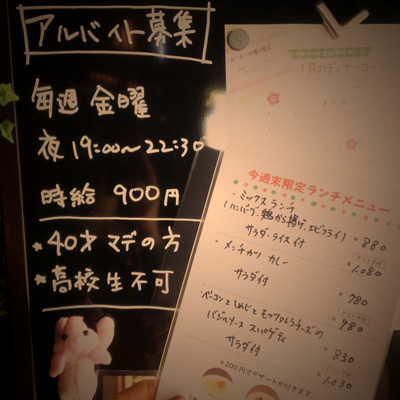 アルバイト募集
毎週 金曜
夜 19:00〜22:30
時給 900円
★40才マデの方
★高校生不可
1月のディナーコース
今週末限定ランチメニュー
・ミックスランチ
(ハンバーグ、鶏から揚げ、エビフライ)
サラダ・ライス付
¥880
¥1,080
・メンチカツ カレー
サラダ付
¥780
¥980
・ベーコンとしめじとモッツァレラチーズの
バジルソース スパゲティ
サラダ付
¥830
¥1,030
+200円でデザートが付きます。